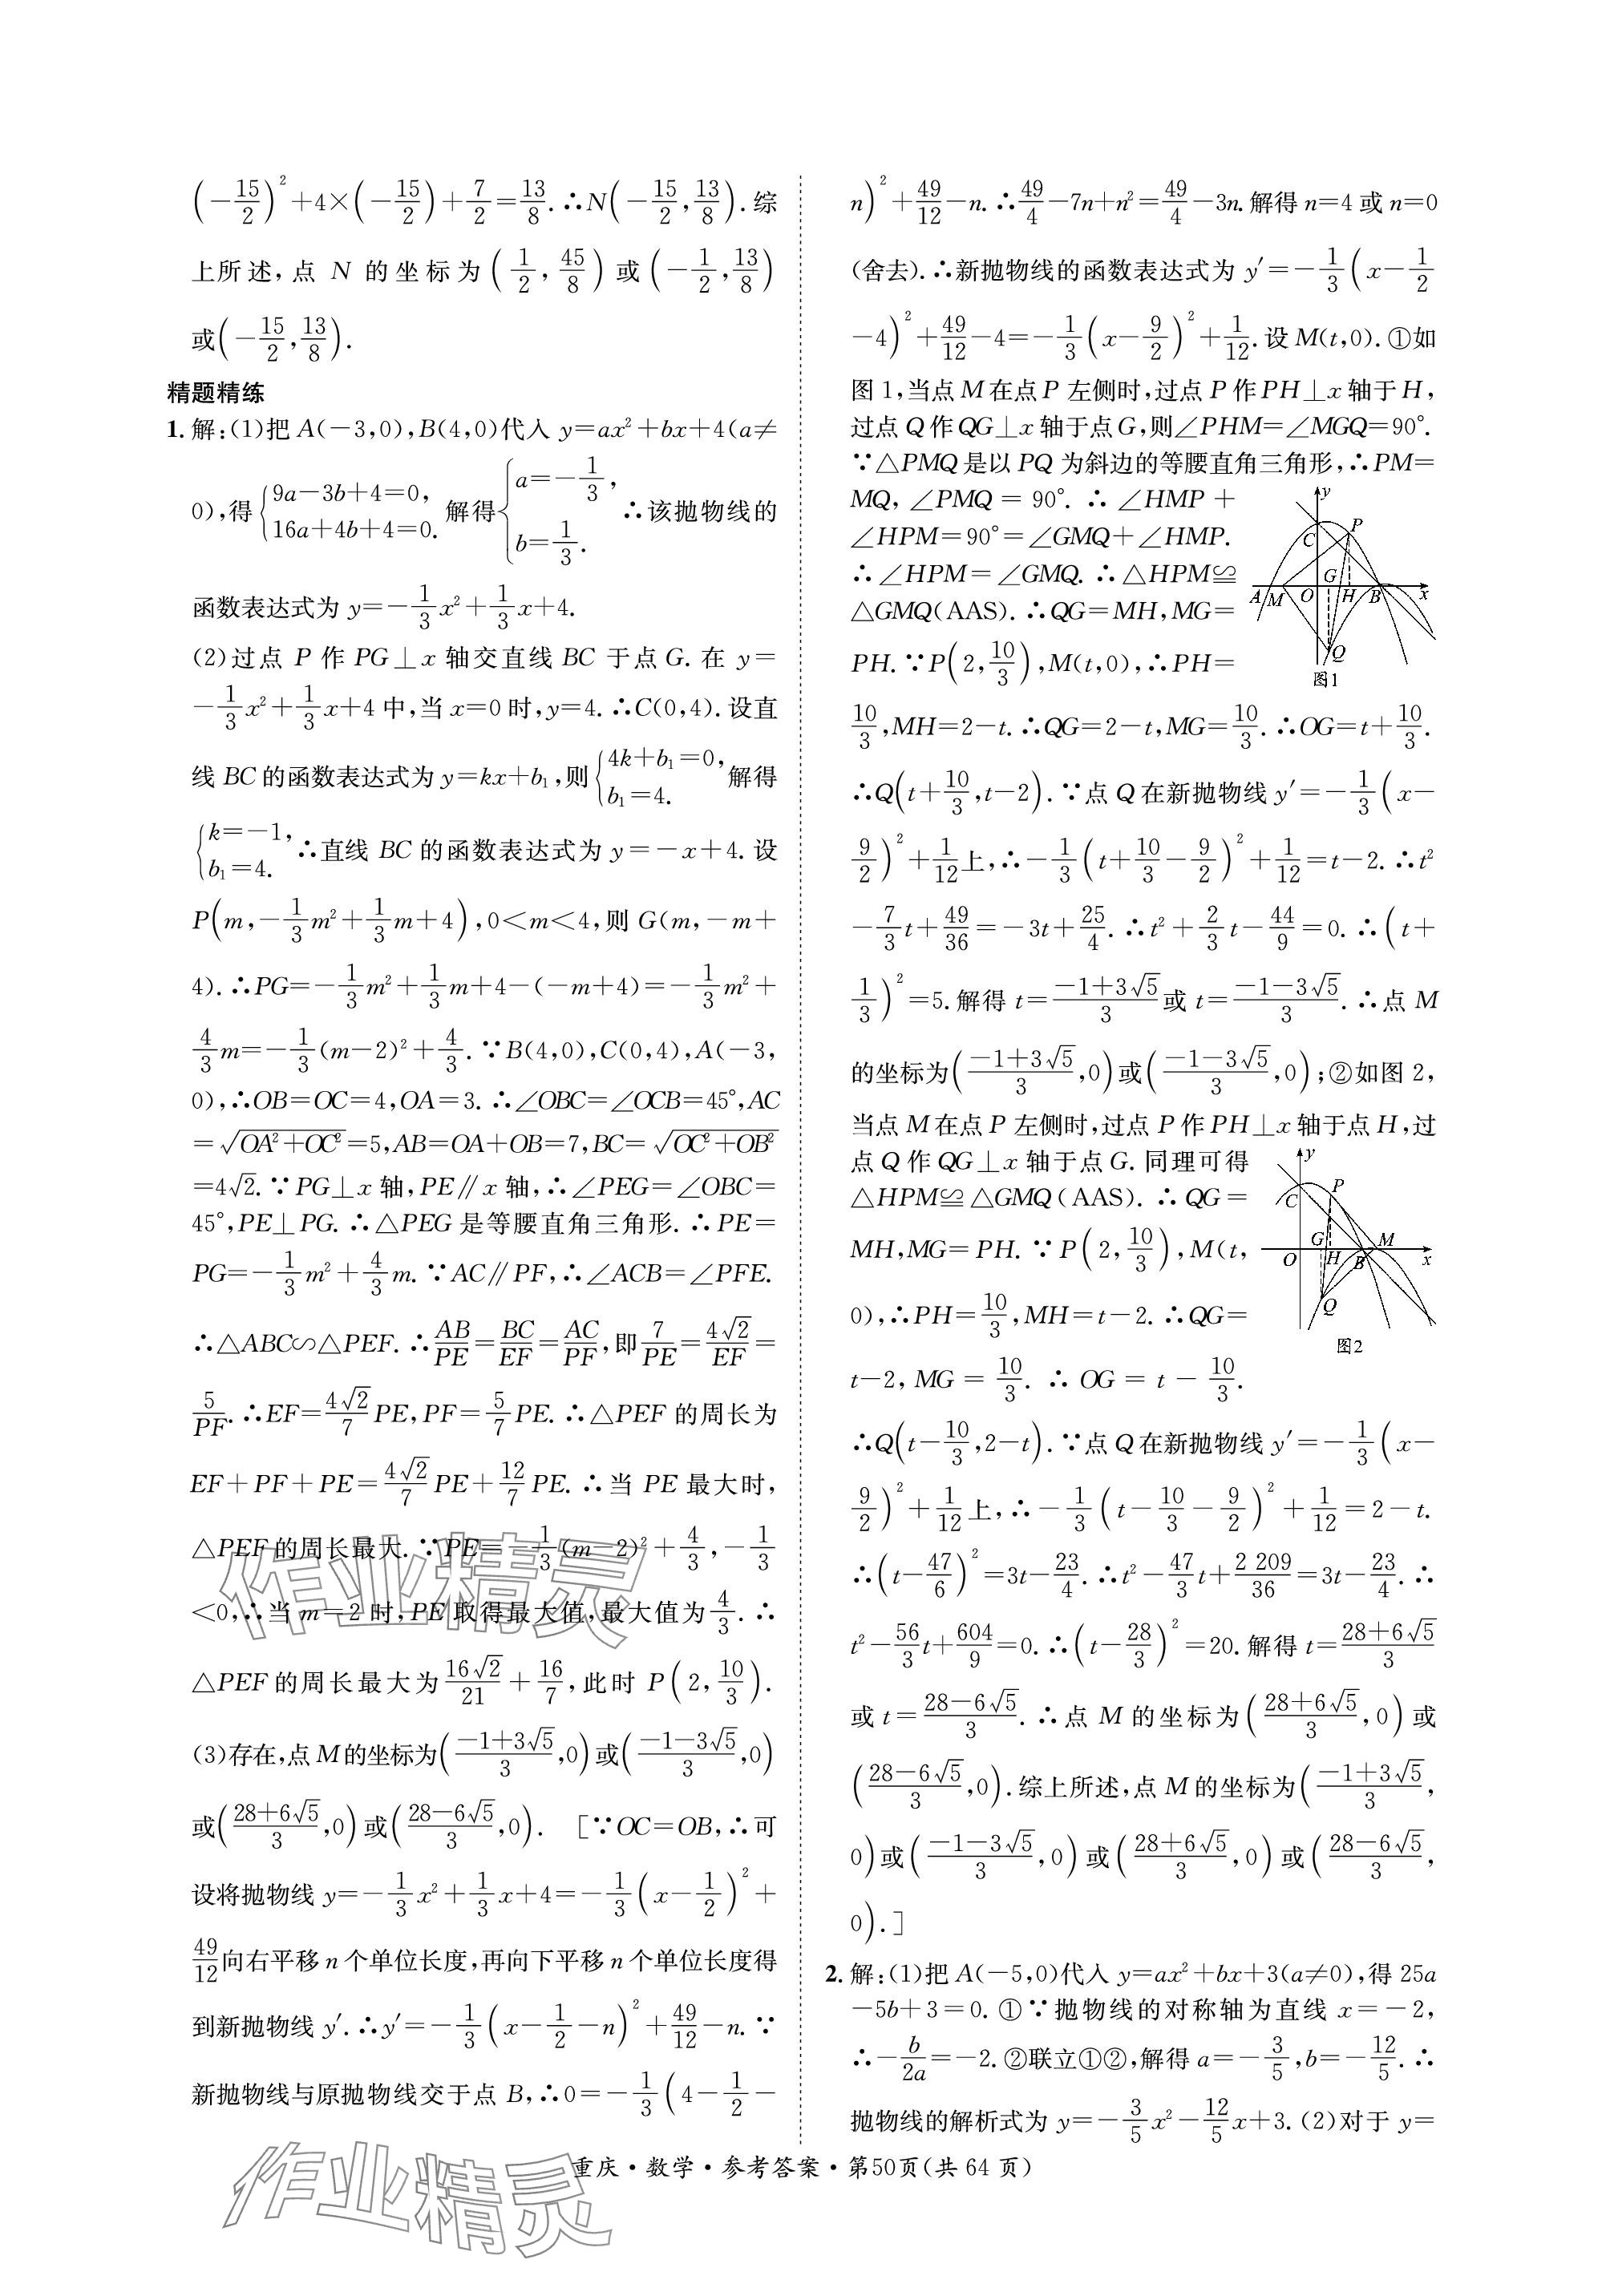 (−15/2)²+4×(−15/2)+7/2=13/8.∴N(−15/2,13/8).综
上所述,点 N 的坐标为(1/2,45/8)或(−1/2,13/8)
或(−15/2,13/8).
精题精练
1.解:(1)把A(−3,0),B(4,0)代入 y=ax²+bx+4(a≠
0),得{9a−3b+4=0,16a+4b+4=0.解得{a=−1/3,b=1/3.∴该抛物线的
函数表达式为 y=−1/3x²+1/3x+4.
(2)过点 P 作 PG⊥x 轴交直线 BC 于点 G.在 y=
−1/3x²+1/3x+4中,当x=0时,y=4.∴C(0,4).设直
线BC的函数表达式为y=kx+b₁,则{4k+b₁=0,b₁=4.解得
{k=−1,b₁=4.∴直线 BC 的函数表达式为 y=−x+4.设
P(m,−1/3m²+1/3m+4),0<m<4,则 G(m,−m+
4).∴PG=−1/3m²+1/3m+4−(−m+4)=−1/3m²+
4/3m=−1/3(m−2)²+4/3.∵B(4,0),C(0,4),A(−3,
0),∴OB=OC=4,OA=3.∴∠OBC=∠OCB=45°,AC
=√(OA²+OC²)=5,AB=OA+OB=7,BC=√(OC²+OB²)
=4√2.∵PG⊥x轴,PE∥x轴,∴∠PEG=∠OBC=
45°,PE⊥PG.∴△PEG是等腰直角三角形.∴PE=
PG=−1/3m²+4/3m.∵AC∥PF,∴∠ACB=∠PFE.
∴△ABC∽△PEF.∴AB/PE=BC/EF=AC/PF,即7/PE=4√2/EF=
5/PF.∴EF=4√2/7PE,PF=5/7PE.∴△PEF的周长为
EF+PF+PE=4√2/7PE+12/7PE.∴当 PE 最大时,
△PEF的周长最大.∵PE=−1/3(m−2)²+4/3,−1/3
<0,∴当m=2时,PE取得最大值,最大值为4/3.∴
△PEF的周长最大为16√2/21+16/7,此时 P(2,10/3).
(3)存在,点M的坐标为((−1+3√5)/3,0)或((−1−3√5)/3,0)
或((28+6√5)/3,0)或((28−6√5)/3,0). [∵OC=OB,∴可
设将抛物线 y=−1/3x²+1/3x+4=−1/3(x−1/2)²+
49/12向右平移n个单位长度,再向下平移n个单位长度得
到新抛物线 y′.∴y′=−1/3(x−1/2−n)²+49/12−n.∵
新抛物线与原抛物线交于点 B,∴0=−1/3(4−1/2−
n)²+49/12−n.∴49/4−7n+n²=49/4−3n.解得n=4或n=0
(舍去).∴新抛物线的函数表达式为 y′=−1/3(x−1/2
−4)²+49/12−4=−1/3(x−9/2)²+1/12.设M(t,0).①如
图1,当点M在点P左侧时,过点P作PH⊥x轴于H,
过点Q作QG⊥x轴于点G,则∠PHM=∠MGQ=90°.
∵△PMQ是以PQ为斜边的等腰直角三角形,∴PM=
MQ,∠PMQ=90°.∴∠HMP+
∠HPM=90°=∠GMQ+∠HMP.
∴∠HPM=∠GMQ.∴△HPM≌
△GMQ(AAS).∴QG=MH,MG=
PH.∵P(2,10/3),M(t,0),∴PH=
y
C
P
G
A M O H B x
Q
图1
10/3,MH=2−t.∴QG=2−t,MG=10/3.∴OG=t+10/3.
∴Q(t+10/3,t−2).∵点Q在新抛物线y′=−1/3(x−
9/2)²+1/12上,∴−1/3(t+10/3−9/2)²+1/12=t−2.∴t²
−7/3t+49/36=−3t+25/4.∴t²+2/3t−44/9=0.∴(t+
1/3)²=5.解得t=(−1+3√5)/3或t=(−1−3√5)/3.∴点M
的坐标为((−1+3√5)/3,0)或((−1−3√5)/3,0);②如图2,
当点M在点P左侧时,过点P作PH⊥x轴于点H,过
点Q作QG⊥x轴于点G.同理可得
△HPM≌△GMQ(AAS).∴QG=
MH,MG=PH.∵P(2,10/3),M(t,
0),∴PH=10/3,MH=t−2.∴QG=
t−2,MG=10/3.∴OG=t−10/3.
y
C
P
G M
O H B x
Q
图2
∴Q(t−10/3,2−t).∵点Q在新抛物线y′=−1/3(x−
9/2)²+1/12上,∴−1/3(t−10/3−9/2)²+1/12=2−t.
∴(t−47/6)²=3t−23/4.∴t²−47/3t+2 209/36=3t−23/4.∴
t²−56/3t+604/9=0.∴(t−28/3)²=20.解得t=(28+6√5)/3
或t=(28−6√5)/3.∴点 M 的坐标为((28+6√5)/3,0)或
((28−6√5)/3,0).综上所述,点M的坐标为((−1+3√5)/3,
0)或((−1−3√5)/3,0)或((28+6√5)/3,0)或((28−6√5)/3,
0).]
2.解:(1)把A(−5,0)代入 y=ax²+bx+3(a≠0),得25a
−5b+3=0.①∵抛物线的对称轴为直线 x=−2,
∴−b/2a=−2.②联立①②,解得a=−3/5,b=−12/5.∴
抛物线的解析式为 y=−3/5x²−12/5x+3.(2)对于 y=
重庆·数学·参考答案·第50页(共 64 页)
作业精灵
作业精灵